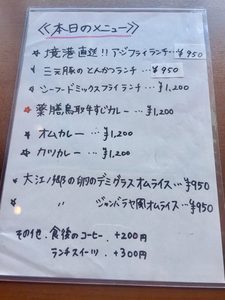 《本日のメニュー》
☆ 境港直送!! アジフライランチ…¥950
☆ 三元豚のとんかつランチ…¥950
☆ シーフードミックスフライランチ…¥1,200
★ 薬膳鳥取牛すじカレー…¥1,200
☆ オムカレー…¥1,200
☆ カツカレー…¥1,200
★ 大江ノ郷の卵のデミグラスオムライス…¥950
★ 〃 ジャンバラヤ風オムライス…¥950
その他、食後のコーヒー +200円
ランチスイーツ +300円